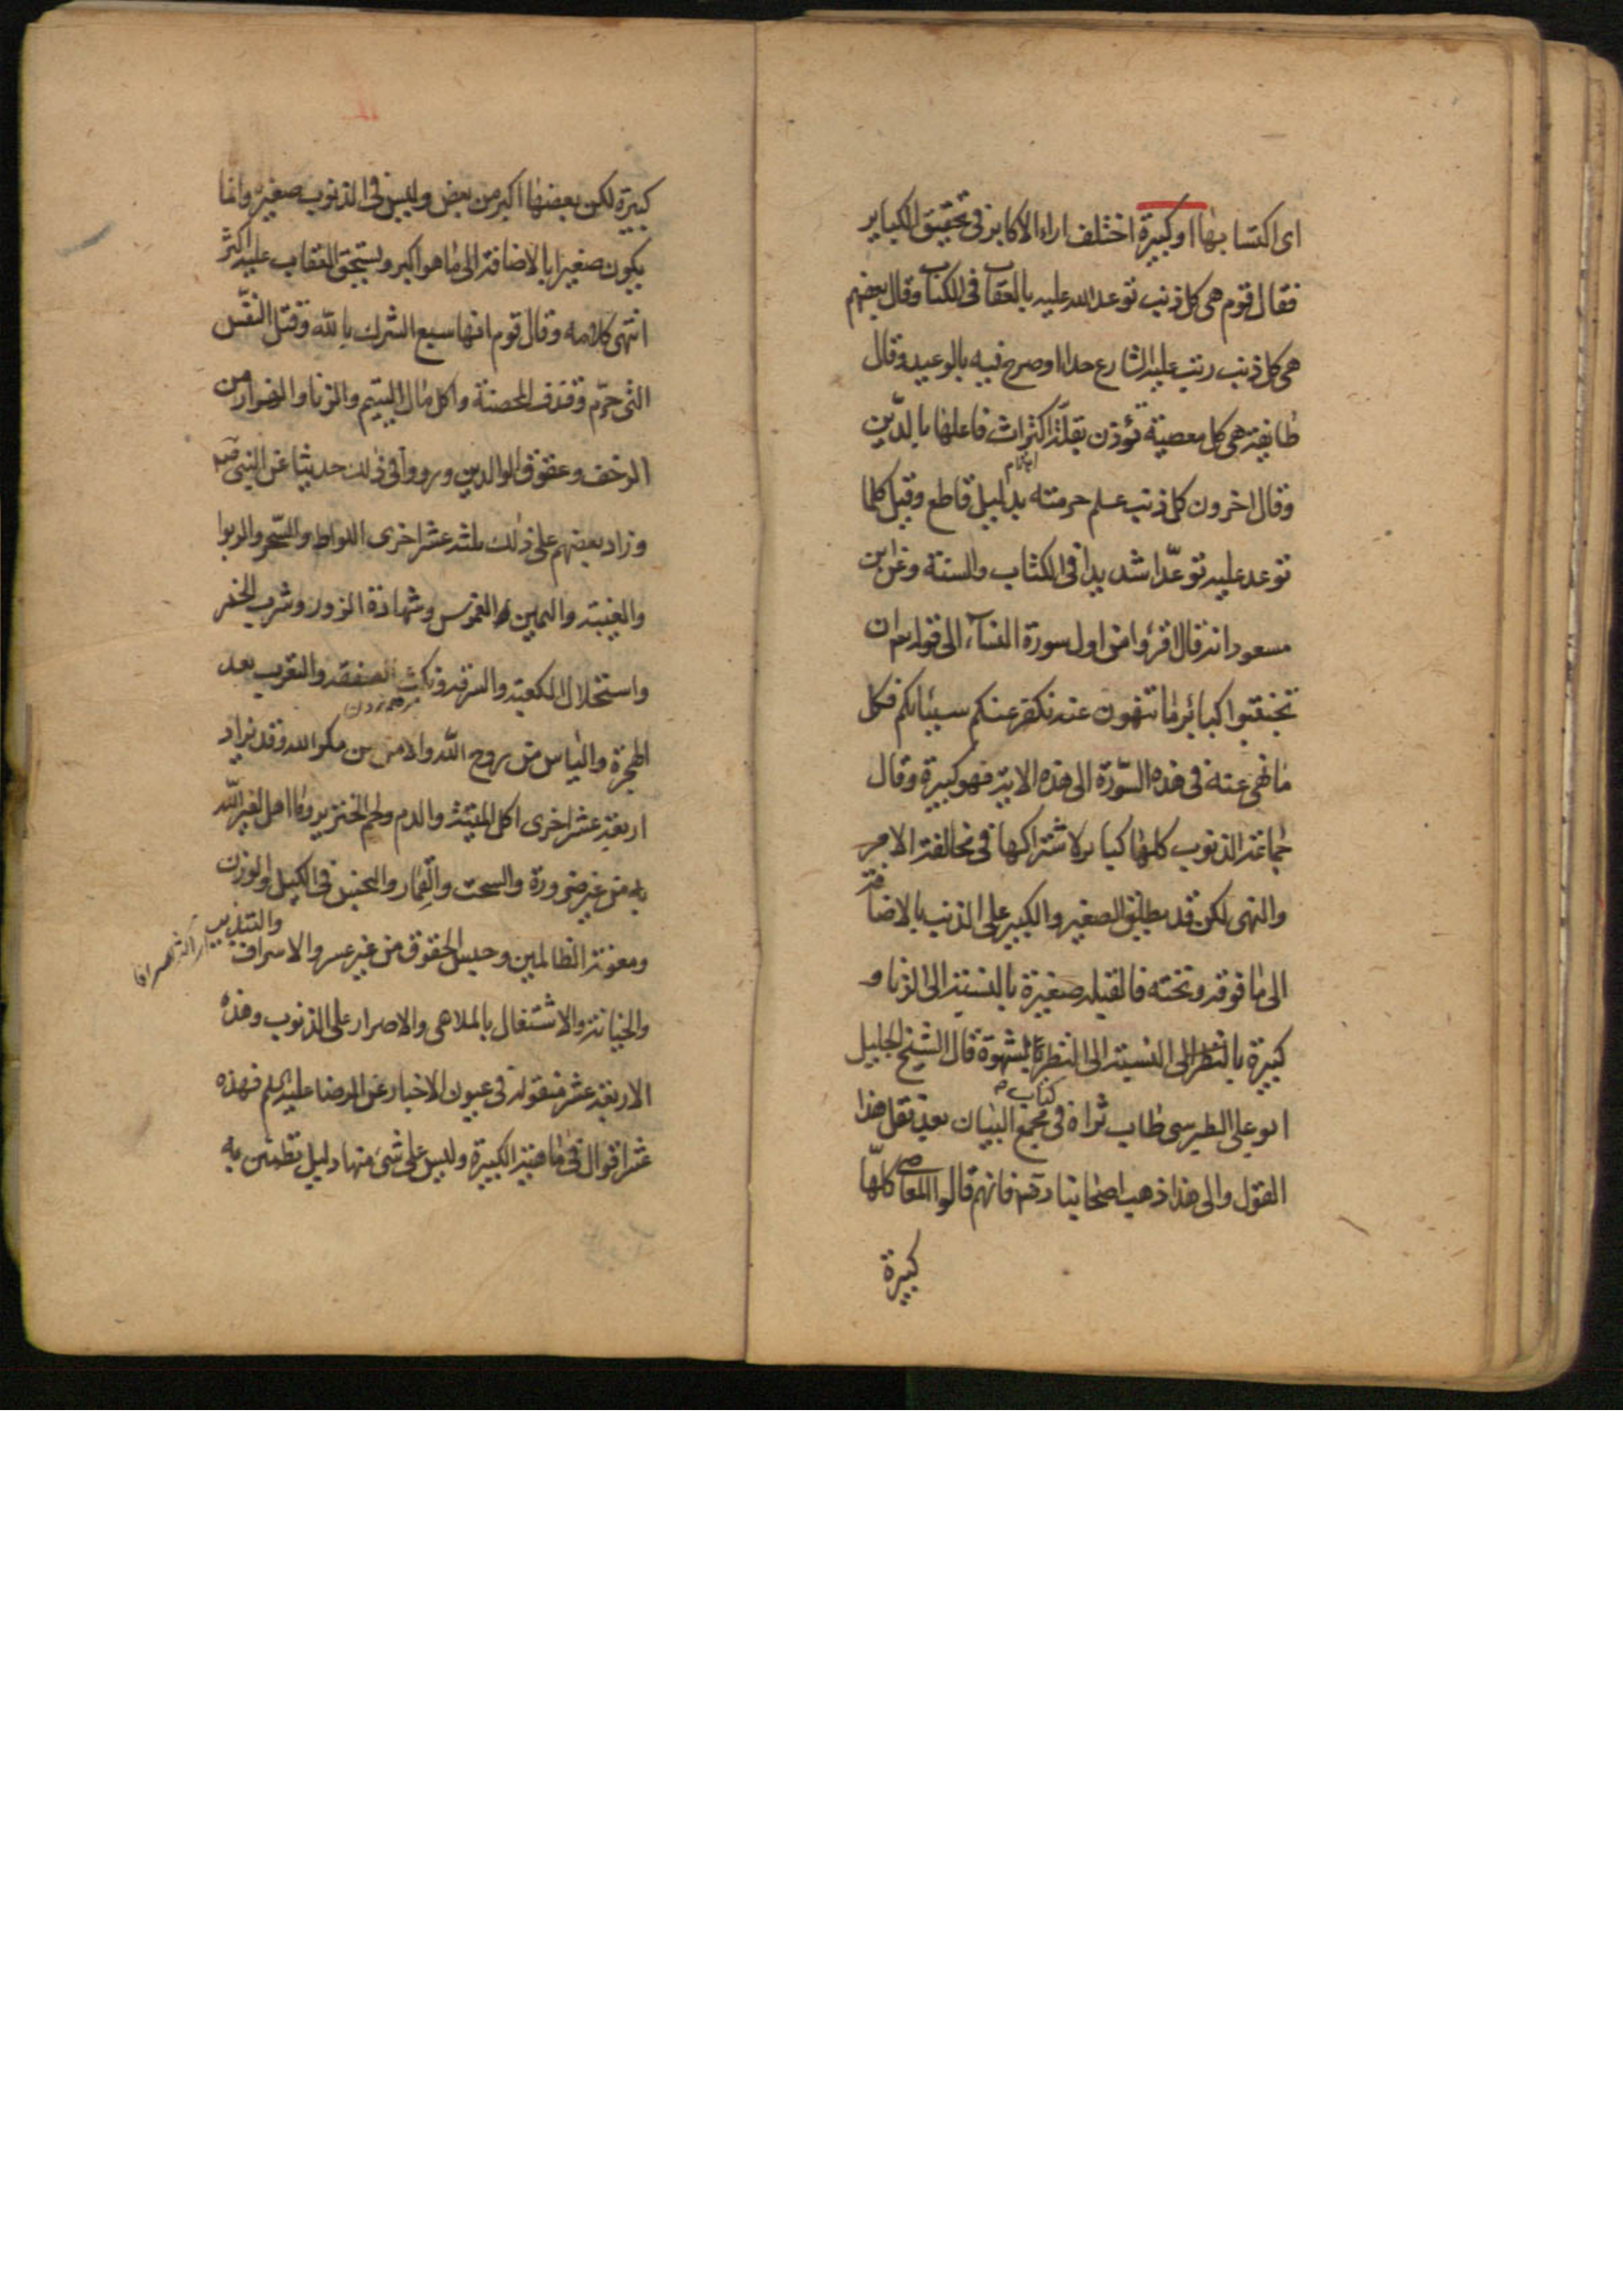 اى اكتسابها او كبيرة اختلف اراء الاكابر فى تحقيق الكباير
فقال قوم هى كل ذنب توعد الله عليه بالعقاب فى الكتاب وقال بعضهم
هى كل ذنب رتب عليه الشارع حدا او صرح فيه بالوعيد وقال
طايفة هى كل معصية تؤذن بقلة اكتراث فاعلها بالدين
اهتمام
وقال اخرون كل ذنب علم حرمته بدليل قاطع وقيل كلما
توعد عليه توعّدا شديدا فى الكتاب والسنة وعن ابن
مسعود انه قال اقرؤا من اول سورة النساء الى قوله ان
تجتنبوا كبائر ما تنهون عنه نكفر عنكم سيئاتكم فكل
ما نهى عنه فى هذه السّورة الى هذه الاية فهو كبيرة وقال
جماعة الذنوب كلها كباير لاشتراكها فى مخالفة الامر
والنهى لكن قد يطلق الصغير والكبير على الذنب بالاضافة
الى ما فوقه وتحته فالقبلة صغيرة بالنسبة الى الزنا و
كبيرة بالنظر الى النسبة الى النظر بشهوة قال الشيخ الجليل
كتاب
ابو على الطبرسى طاب ثراه فى مجمع البيان بعد نقل هذا
القول والى هذا ذهب اصحابنا رض فانهم قالوا المعاصى كلها
كبيرة
كبيرة لكن بعضها اكبر من بعض وليس فى الذنوب صغيرة وانما
يكون صغيرا بالاضافة الى ما هو اكبر ويستحق العقاب عليه اكثر
انتهى كلامه وقال قوم انها سبع الشرك بالله وقتل النفس
التى حرّم وقذف المحصنة واكل مال اليتيم والزنا والفرار من
الزحف وعقوق الوالدين ورووا فى ذلك حديثا عن النبى ص
وزاد بعضهم على ذلك ثلثة عشر اخرى اللواط والسّحر والربوا
والغيبة واليمين الغموس وشهادة الزور وشرب الخمر
واستحلال الكعبة والسرقة ونكث الصفقة والتعرب بعد
الهجرة والياس من روح الله والامن من مكر الله وقد يزاد
اربعة عشر اخرى اكل الميتة والدم ولحم الخنزير وما اهل لغير الله
به من غير ضرورة والسحت والقمار والبخس فى الكيل والوزن
ومعونة الظالمين وحبس الحقوق من غير عسر والاسراف
والتبذير
والخيانة والاشتغال بالملاهى والاصرار على الذنوب وهذه
الاربعة عشر منقولة فى عيون الاخبار عن الرضا عليه السلم فهذه
عشر اقوال فى ماهية الكبيرة وليس على شئ منها دليل تطمئن به